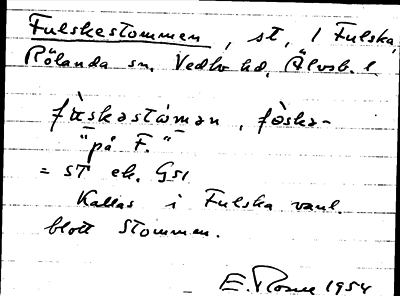 Fulskestommen, st, i Fulska,
Rölanda sn, Vedbo hd, Älvsb. l
fùskəstòmən, fòskə-
"på F."
= ST ek. Gs1
Kallas i Fulska vanl.
blott Stommen.
E. Rosen 1954